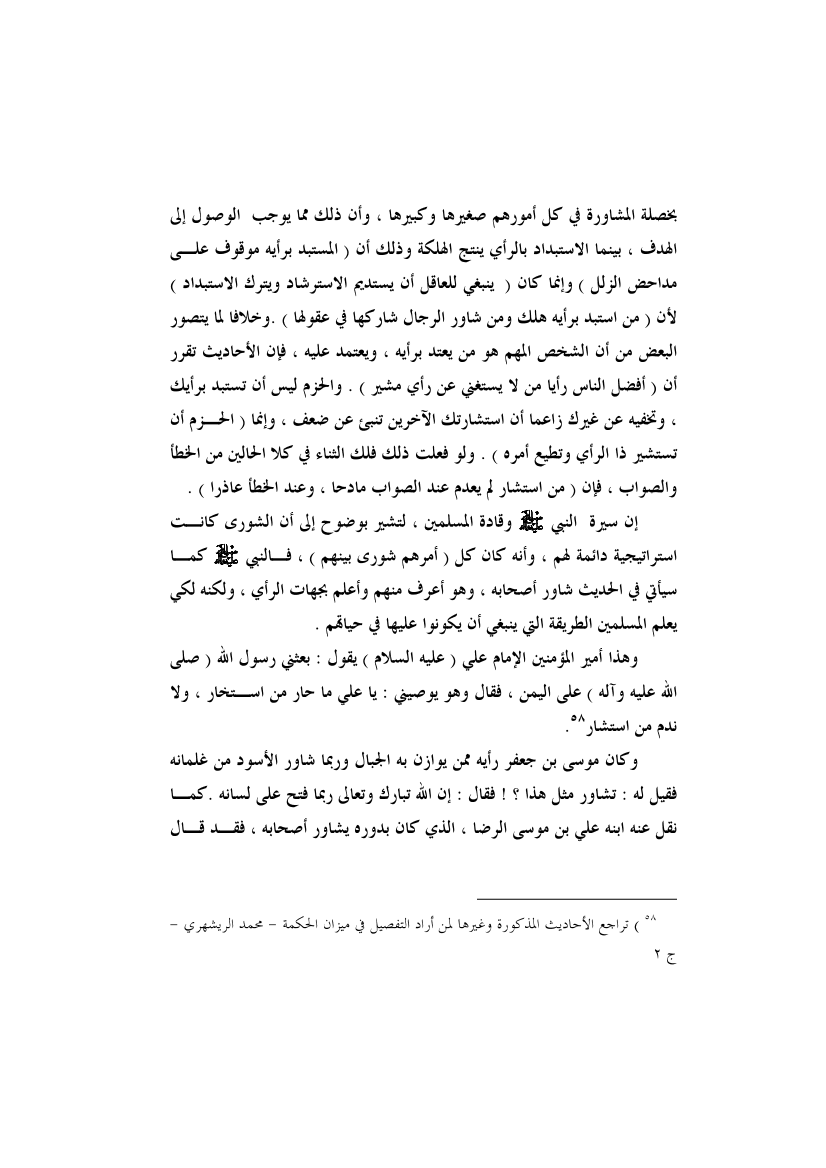 بخصلة المشاورة في كل أمورهم صغيرها وكبيرها ، وأن ذلك مما يوجب الوصول إلى
الهدف ، بينما الاستبداد بالرأي ينتج الهلكة وذلك أن ( المستبد برأيه موقوف علـــى
مداحض الزلل ) وإنما كان ( ينبغي للعاقل أن يستديم الاسترشاد ويترك الاستبداد )
لأن ( من استبد برأيه هلك ومن شاور الرجال شاركها في عقولها ) .وخلافا لما يتصور
البعض من أن الشخص المهم هو من يعتد برأيه ، ويعتمد عليه ، فإن الأحاديث تقرر
أن ( أفضل الناس رأيا من لا يستغني عن رأي مشير ) . والحزم ليس أن تستبد برأيك
، وتخفيه عن غيرك زاعما أن استشارتك الآخرين تنبئ عن ضعف ، وإنما ( الحـــزم أن
تستشير ذا الرأي وتطيع أمره ) . ولو فعلت ذلك فلك الثناء في كلا الحالين من الخطأ
والصواب ، فإن ( من استشار لم يعدم عند الصواب مادحا ، وعند الخطأ عاذرا ) .
إن سيرة النبي ﷺ وقادة المسلمين ، لتشير بوضوح إلى أن الشورى كانـــت
استراتيجية دائمة لهم ، وأنه كان كل ( أمرهم شورى بينهم ) ، فـــالنبي ﷺ كمـــا
سيأتي في الحديث شاور أصحابه ، وهو أعرف منهم وأعلم بجهات الرأي ، ولكنه لكي
يعلم المسلمين الطريقة التي ينبغي أن يكونوا عليها في حياتهم .
وهذا أمير المؤمنين الإمام علي ( عليه السلام ) يقول : بعثني رسول الله ( صلى
الله عليه وآله ) على اليمن ، فقال وهو يوصيني : يا علي ما حار من اســـتخار ، ولا
ندم من استشار٥٨.
وكان موسى بن جعفر رأيه ممن يوازن به الجبال وربما شاور الأسود من غلمانه
فقيل له : تشاور مثل هذا ؟ ! فقال : إن الله تبارك وتعالى ربما فتح على لسانه .كمـــا
نقل عنه ابنه علي بن موسى الرضا ، الذي كان بدوره يشاور أصحابه ، فقـــد قـــال
٥٨ ) تراجع الأحاديث المذكورة وغيرها لمن أراد التفصيل في ميزان الحكمة – محمد الريشهري –
ج ٢